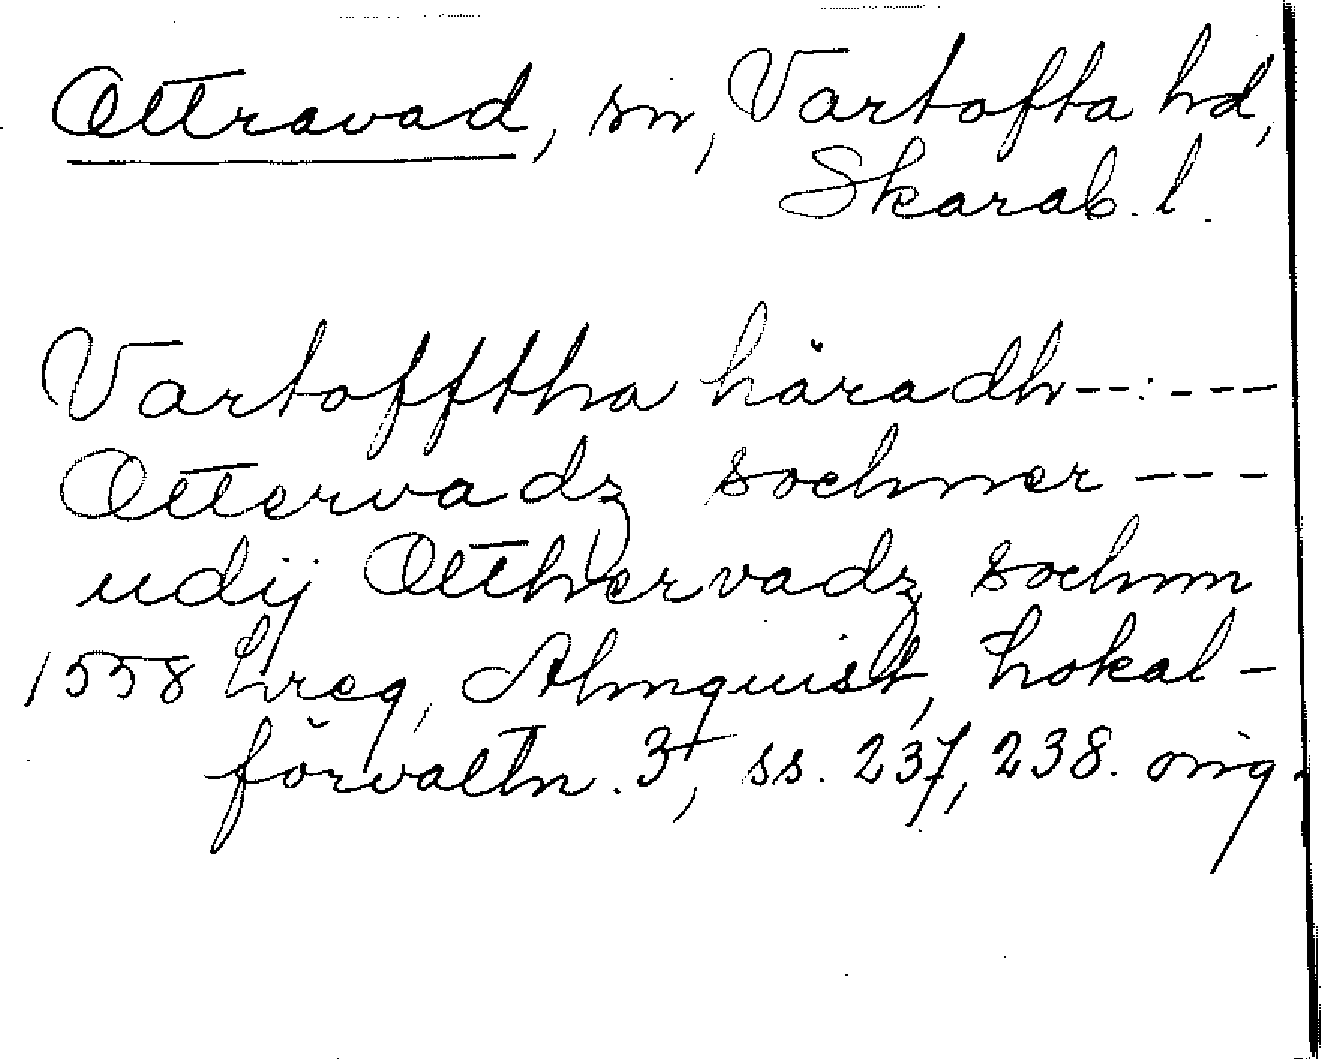 Ottravad, sn, Vartofta hd,
Skarab. l.
Vartofftha häradh -- : ---
Ottervadz sochner ---
udij Otthervadz sochnn
1558 Lreg, Almquist, Lokal-
förvaltn. 3, ss. 237, 238. orig.